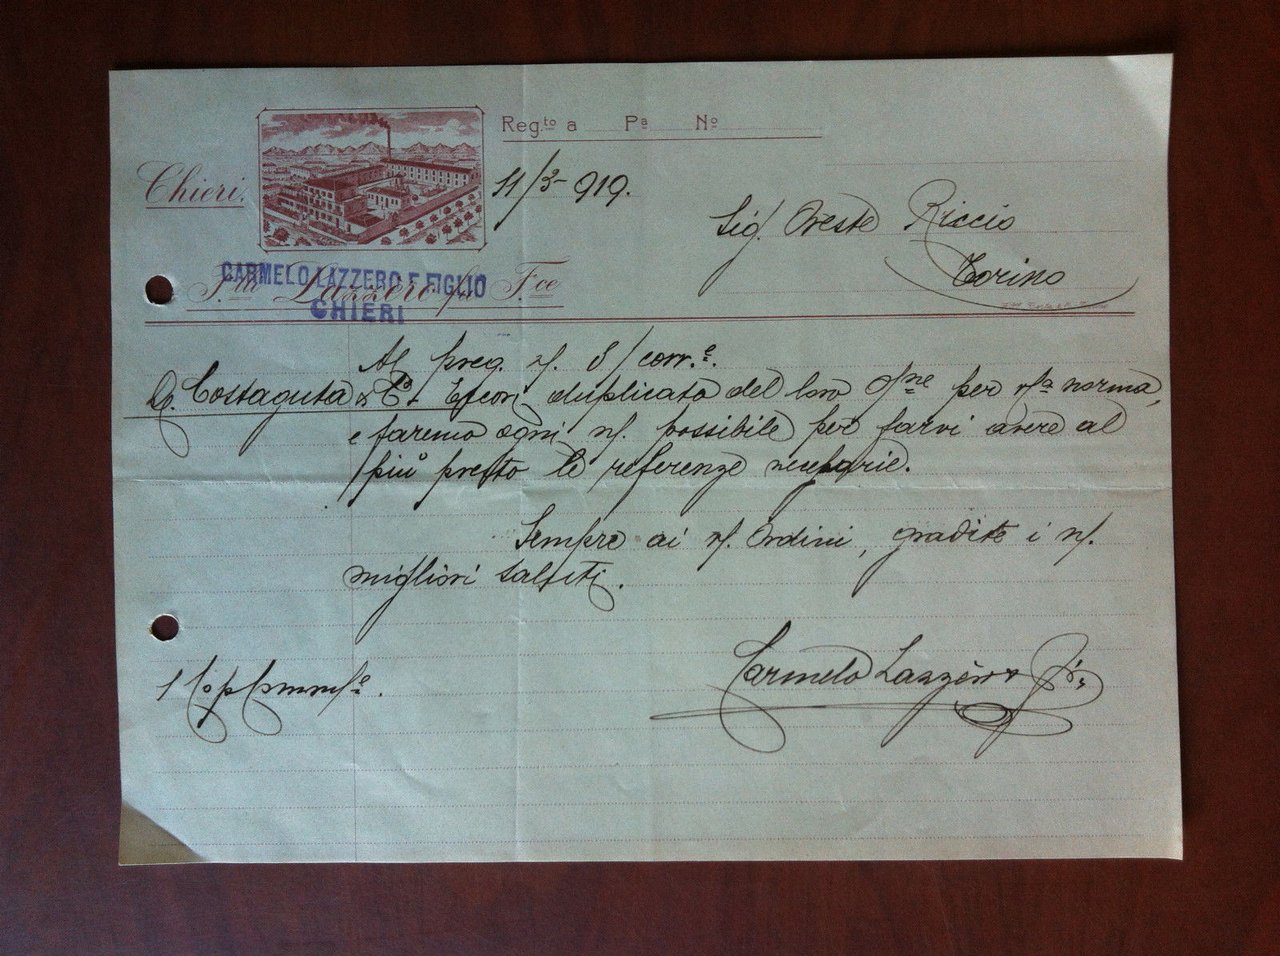 Reg.to a Pa No
Chieri, 11/3-919.
Sig. Oreste Riccio
Torino
F.lli Lazzero fu F.ce
CARMELO LAZZERO E FIGLIO
CHIERI
Al preg. v/. 8/corr.e.
D. Costaguta & C° Eccovi duplicata del loro O/ne per v/a norma,
e faremo ogni n/. possibile per farvi avere al
più presto le referenze necessarie.
Sempre ai v/. Ordini, gradite i n/.
migliori saluti.
1 Cop Comm/e.
Carmelo Lazzero & F°